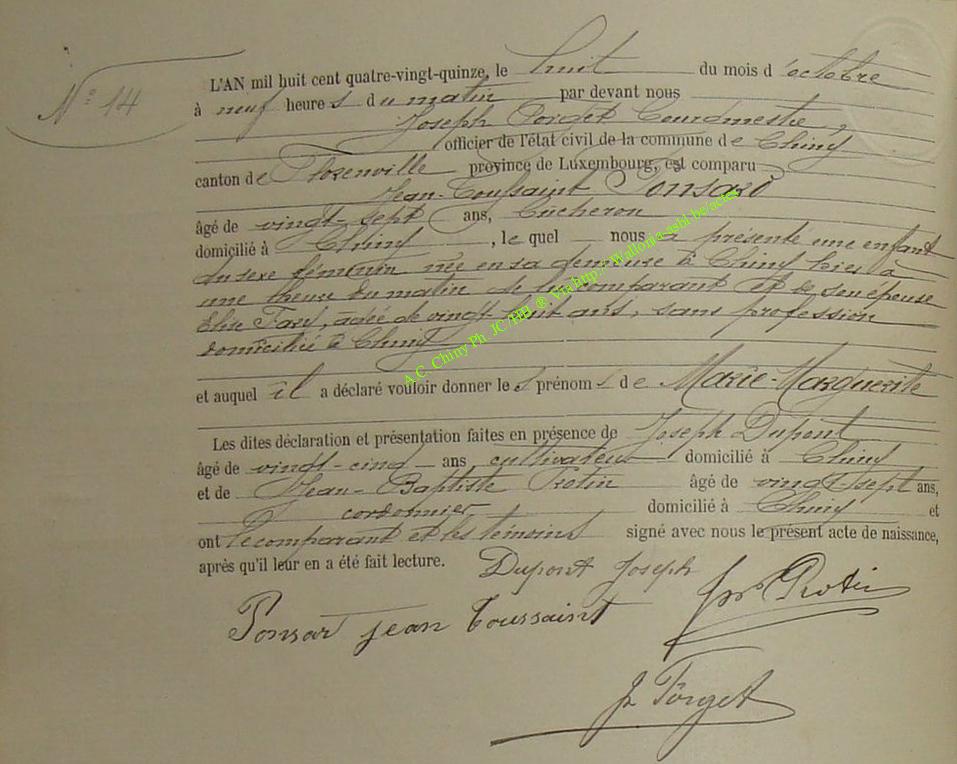 N° 14
L'AN mil huit cent quatre-vingt-quinze, le huit du mois d'octobre
à neuf heures du matin par devant nous
Joseph Forget Bourgmestre,
officier de l'état civil de la commune de Chiny
canton de Florenville province de Luxembourg, est comparu
Jean-Toussaint Ponsard
âgé de vingt-sept ans, bucheron
domicilié à Chiny, lequel nous a présenté une enfant
du sexe féminin née en sa demeure à Chiny hier à
une heure du matin de lui comparant et de son épouse
Elise, agée de vingt huit ans, sans profession
domicilié à Chiny
et auquel il a déclaré vouloir donner les prénoms de Marie-Marguerite
Les dites déclaration et présentation faites en présence de Joseph Dupont
âgé de vingt-cinq ans, cultivateur domicilié à Chiny
et de Jean-Baptiste Protin âgé de vingt-sept ans,
cordonnier domicilié à Chiny et
ont le comparant et les témoins signé avec nous le présent acte de naissance,
après qu'il leur en a été fait lecture.
Dupont Joseph
Protin
Ponsar jean Toussaint
J Forget
A.C. Chiny Ph. JC/HD ® Via http://Wallonia-asbl.be/actes